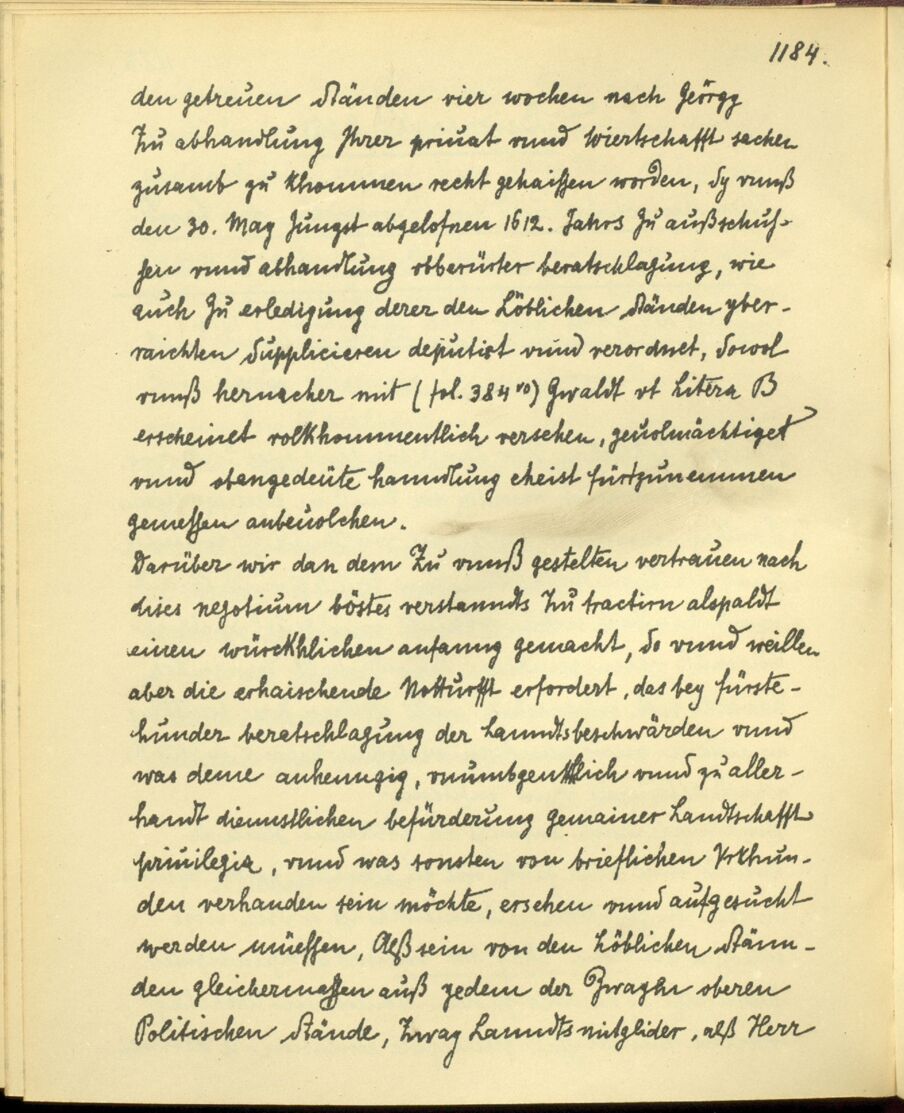 1184.
den getreuen Ständen vier wochen nach Geörgy
Zu abhandlung Ihrer priuat vnnd Wiertschafft sachen
zusamb zu khommen recht gehaissen worden, Sy vnnß
den 30. May Jüngst abgelofnen 1612. Jahrs Zu außschus-
sen vnnd abhandlung obberürter beratschlagung, wie
auch Zu erledigung derer den Löblichen Ständen yber-
raichten Supplicieren deputirt vnnd verordnet, Sowol
vnnß hernacher mit (fol. 384 vo) Gwaldt vt Litera B
erscheinet volkhommentlich versehen, geuolmächtiget
vnnd obangedeüte hanndlung eheist fürtzunemmen
gemessen anbeuolchen.
Darüber wir dan dem Zu vnnß gestelten vertrauen nach
dises negotium böstes verstanndts Zu tractirn alspaldt
einen würckhlichen anfanng gemacht, So vnnd weillen
aber die erhaischende Notturfft erfordert, das bey fürste-
hunder beratschlagung der Lanndtsbeschwärden vnnd
was deme anhenngig, vnumbgentlich vnnd zu aller-
handt diennstlichen befürderung gemainer Landtschafft
priuilegia, vnnd was sonsten von brieflichen Vrkhun-
den verhanden sein möchte, ersehen vnnd aufgesucht
werden müessen, Alß sein von den Löblichen Stänn-
den gleichermassen auß yedem der Zwayen oberen
Politischen Stände, Zway Lanndtsmitglider, alß Herr